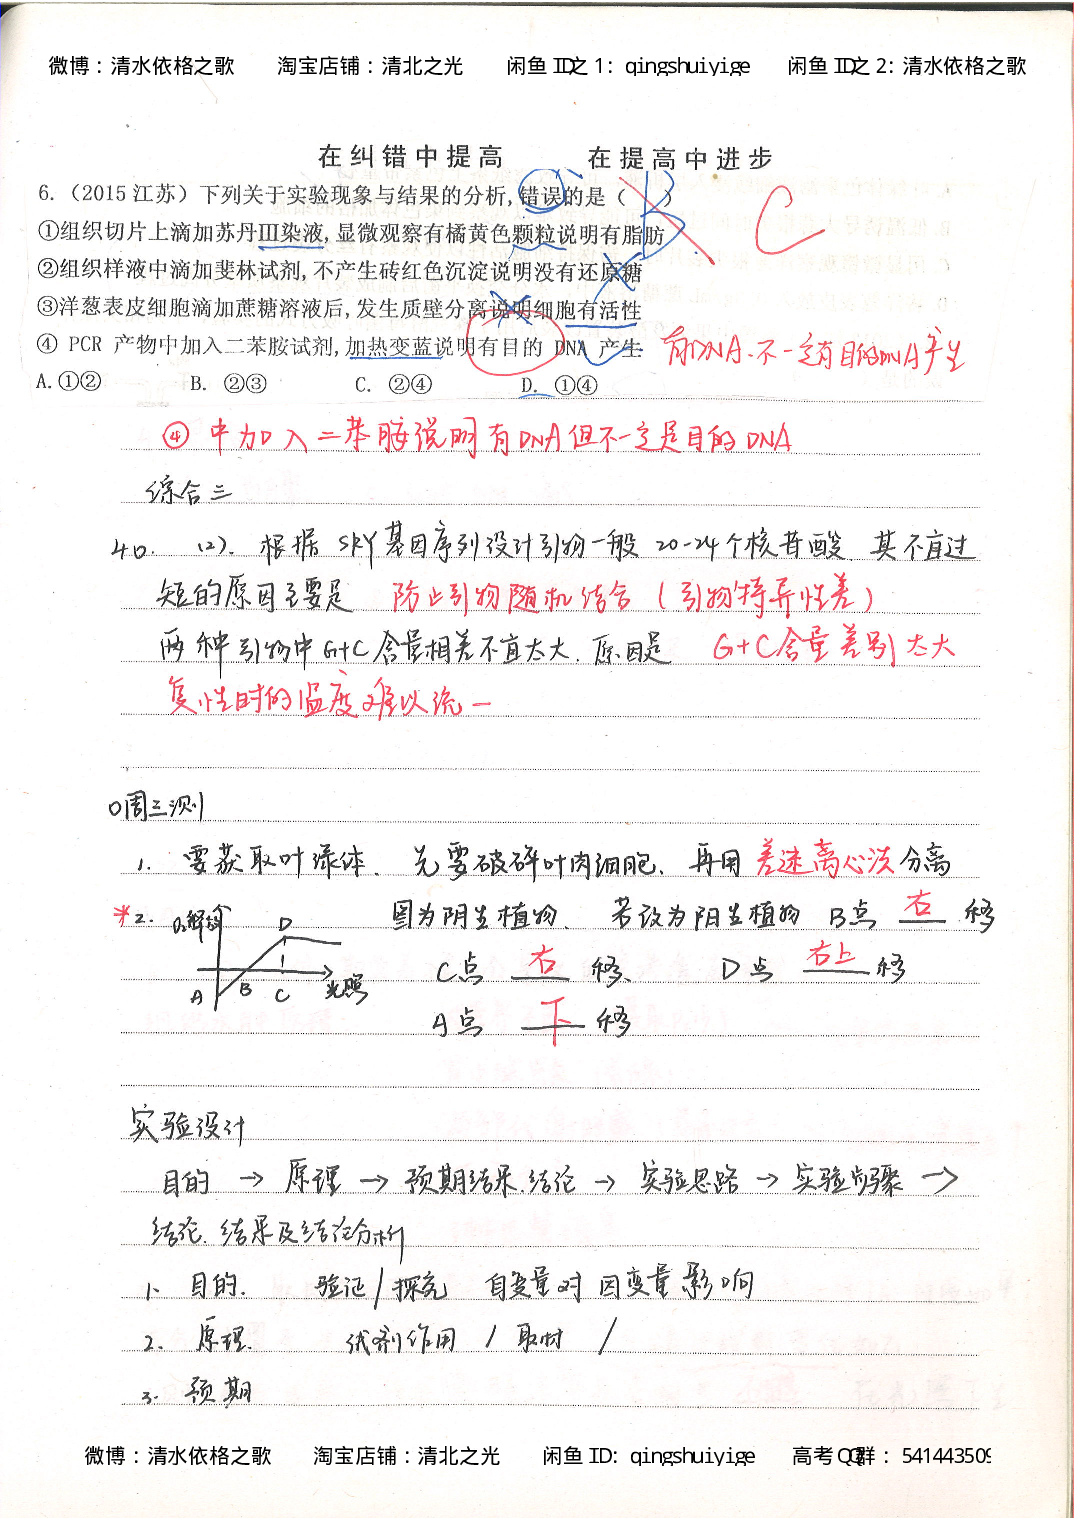 微博：清水依格之歌 淘宝店铺：清北之光 闲鱼 ID之 1：qingshuiyige 闲鱼 ID之 2：清水依格之歌
在纠错中提高 在提高中进步
6.（2015江苏）下列关于实验现象与结果的分析,错误的是（ ） B C
①组织切片上滴加苏丹III染液,显微观察有橘黄色颗粒说明有脂肪
②组织样液中滴加斐林试剂,不产生砖红色沉淀说明没有还原糖
③洋葱表皮细胞滴加蔗糖溶液后,发生质壁分离说明细胞有活性
④ PCR 产物中加入二苯胺试剂,加热变蓝说明有目的 DNA 产生
有DNA、不一定有目的DNA产生
A.①② B. ②③ C. ②④ D. ①④
④ 中加入二苯胺说明有DNA但不一定是目的DNA
综合三
40. (2). 根据 SRY基因序列设计引物一般 20-24个核苷酸 其不宜过
短的原因主要是 防止引物随机结合（引物特异性差）
两种引物中G+C含量相差不宜太大. 原因是 G+C含量差别太大
复性时的温度难以统一
周三测
1. 要获取叶绿体. 先要破碎叶肉细胞. 再用 差速离心法 分离
*2. 图为阴生植物. 若改为阳生植物 B点 右 移
O₂释放
D
A B C 光照
C点 右 移. D点 右上 移
A点 下 移
实验设计
目的 → 原理 → 预期结果.结论 → 实验思路 → 实验步骤 →
结论. 结果及结论分析
1. 目的. 验证/探究 自变量对 因变量影响
2. 原理. 试剂作用 / 取材 /
3. 预期
微博：清水依格之歌 淘宝店铺：清北之光 闲鱼 ID：qingshuiyige 高考 QQ群：541443509